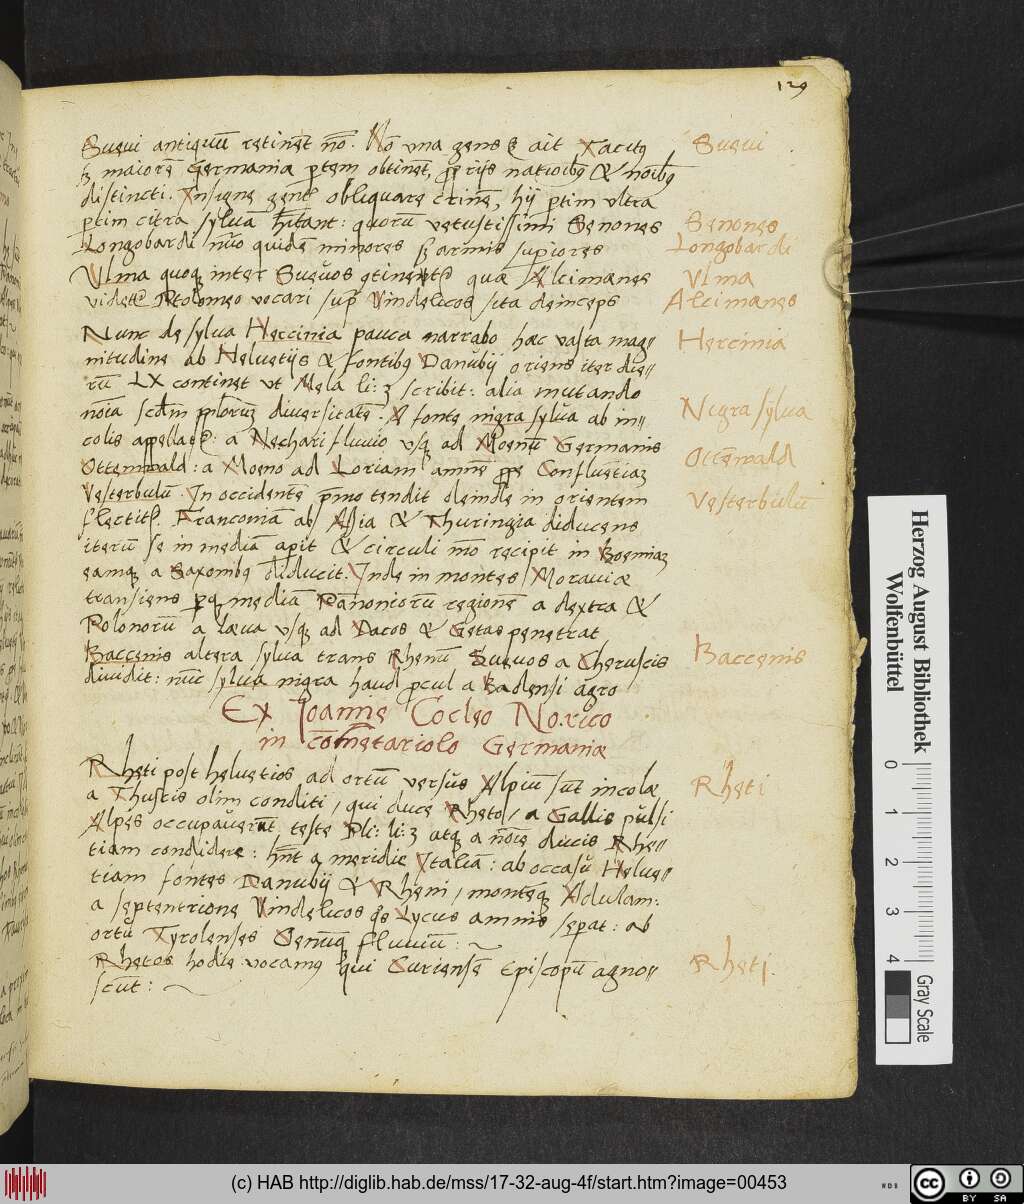 129
Sueui antiquũ retinẽt nõ. Nõ vna gens ẽ ait Tacitꝰ
sꝫ maiorẽ Germania ptem obtinẽt, ꝓprijs natioibꝰ & noibꝰ
distincti. Insigne gent obliquare crinẽ, hij ptim vltra
ptim citra syluã hitant: quorũ vetustissimi Senones
Longobardi nũo quidẽ minores sꝫ armis supiores
Vlma quoqꝫ inter Sueuos gtinent quæ Alcimanes
videt Ptolomeo vocari sup Vindelicos sita deinceps
Nunc de sylua Hercinia pauca narrabo hæc vasta mag⸗
nitudine ab Heluetijs & fontibꝰ Danubij oriens iter die⸗
rũ LX continet vt Mela li: 3 scribit: alia mutando
nõia scdm pnlorũ diuersitatẽ. A fonte nigra sylua ab in⸗
colis apellat: a Nechari fluuio vsqꝫ ad Moenũ Germanis
Ottennwald: a Moeno ad Loriam amnẽ ꝓpe Confluetiaꝫ
Vesterbulũ. In occidentẽ pmo tendit deinde in orientem
flectit. Franconiã ab Assia & Thuringia diducens
iterũ se in mediã apit & circuli mõ recipit in Boemiaꝫ
eamqꝫ a Saxombꝰ diducit. Inde in montes Morauiæ
transiens pqꝫ mediã Pannoniorũ regionẽ a dextra &
Polonorũ a læua vsqꝫ ad Dacos & Getas penetrat
Baccenis altera sylua trans Rhenũ Sueuos a Cheruscis
diuidit: nũc sylua nigra haud pcul a Badensi agro
Ex Joanne Cocleo Norico
in cõmẽtariolo Germaniæ
Rheti post heluetios ad ortũ versus Alpiũ sũt incolæ
a Thuscis olim conditi, qui duce Rheto, a Gallis pulsi
Alpes occupauerũt, teste Pli: li: 3 atqꝫ a nõie ducis Rhe⸗
tiam condidere: hñt a meridie Italiã: ab occasu Helue⸗
tiam fontes Danubij & Rheni, montẽqꝫ Adulam:
a septentrione Vindelicos qs Lycus amnis sepat: ab
ortu Tyrolenses Oenũqꝫ fluuiũ:
Rhetos hodie vocamꝰ qui Curiensẽ Episcopũ agno⸗
scũt:
Sueui
Senones
Longobardi
Vlma
Alcimanes
Hercinia
Nigra sylua
Ottẽwald
Vesterbulũ
Baccenis
Rheti
Rheti
Herzog August Bibliothek
Wolfenbüttel
0 1 2 3 4
Gray Scale
(c) HAB http://diglib.hab.de/mss/17-32-aug-4f/start.htm?image=00453
WDB
cc BY SA